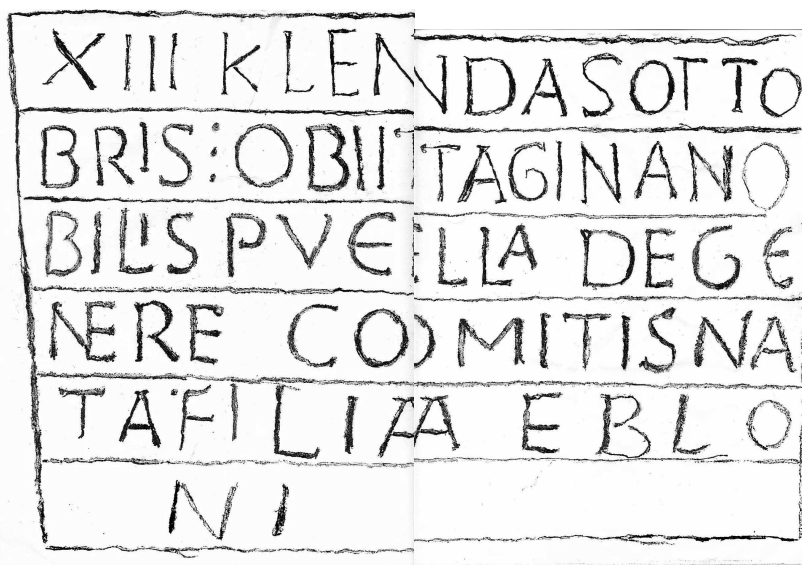 XIII KLENDASOTTO
BRIS⋮OBIITAGINANO
BILIS PVELLA DEGE
NERE COMITISNA
TA FILIA EBLO
NI